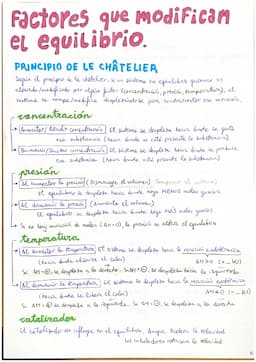 factores que modifican
el equilibrio.
PRINCIPIO DE LE CHÂTELIER
Según el principio de le châtelier, si un sistema en equilibrio químico es
alterado/modificado por algún factor (concentración, presión, temperatura), el
sistema se desplazándose para contrarrestar esa variación.
concentración
Aumentar/Añadir concentración El sistema se desplaza hacia donde se gaste
esa substancia (hacia donde no esté presente la substancia)
concentración El sistema se desplaza hacia donde se produzca
esa substancia (hacia donde esté presente la substancia)
presión
Al aumentar la presión (Disminuye el volumen)
El equilibrio se desplaza hacia donde haya MENOS moles gaseosos
Al disminuir la presión (Aumenta el volumen)
El equilibrio se desplaza hacia donde haya más moles gaseosos
Si no hay variación de moles (Δn=0), la presión no afecta el equilibrio
temperatura
Al aumentar la temperatura El sistema se desplaza hacia la reacción endotérmica
(hacia donde absorbe el calor) ΔH>0
Si ΔH se desplaza a la derecha. Si ΔH se desplaza hacia la izquierda
Al disminuir la temperatura El sistema se desplaza hacia la reacción exotérmica
(hacia donde se libera el calor) ΔH<0
Si ΔH se desplaza a la izquierda. Si ΔH se desplaza a la derecha
catalizador
El catalizador no influye en el equilibrio, aunque la velocidad
los inhibidores la velocidad